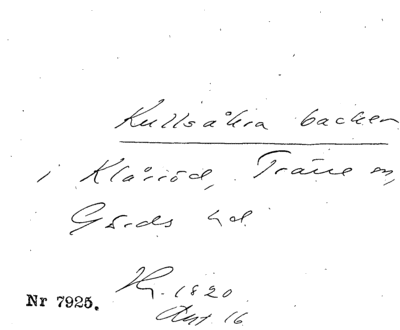 Kullsåkra backen
i Klåröd, Träne sn,
Gärds hd.
Hz. 1820
Avt 16
Nr 7925.